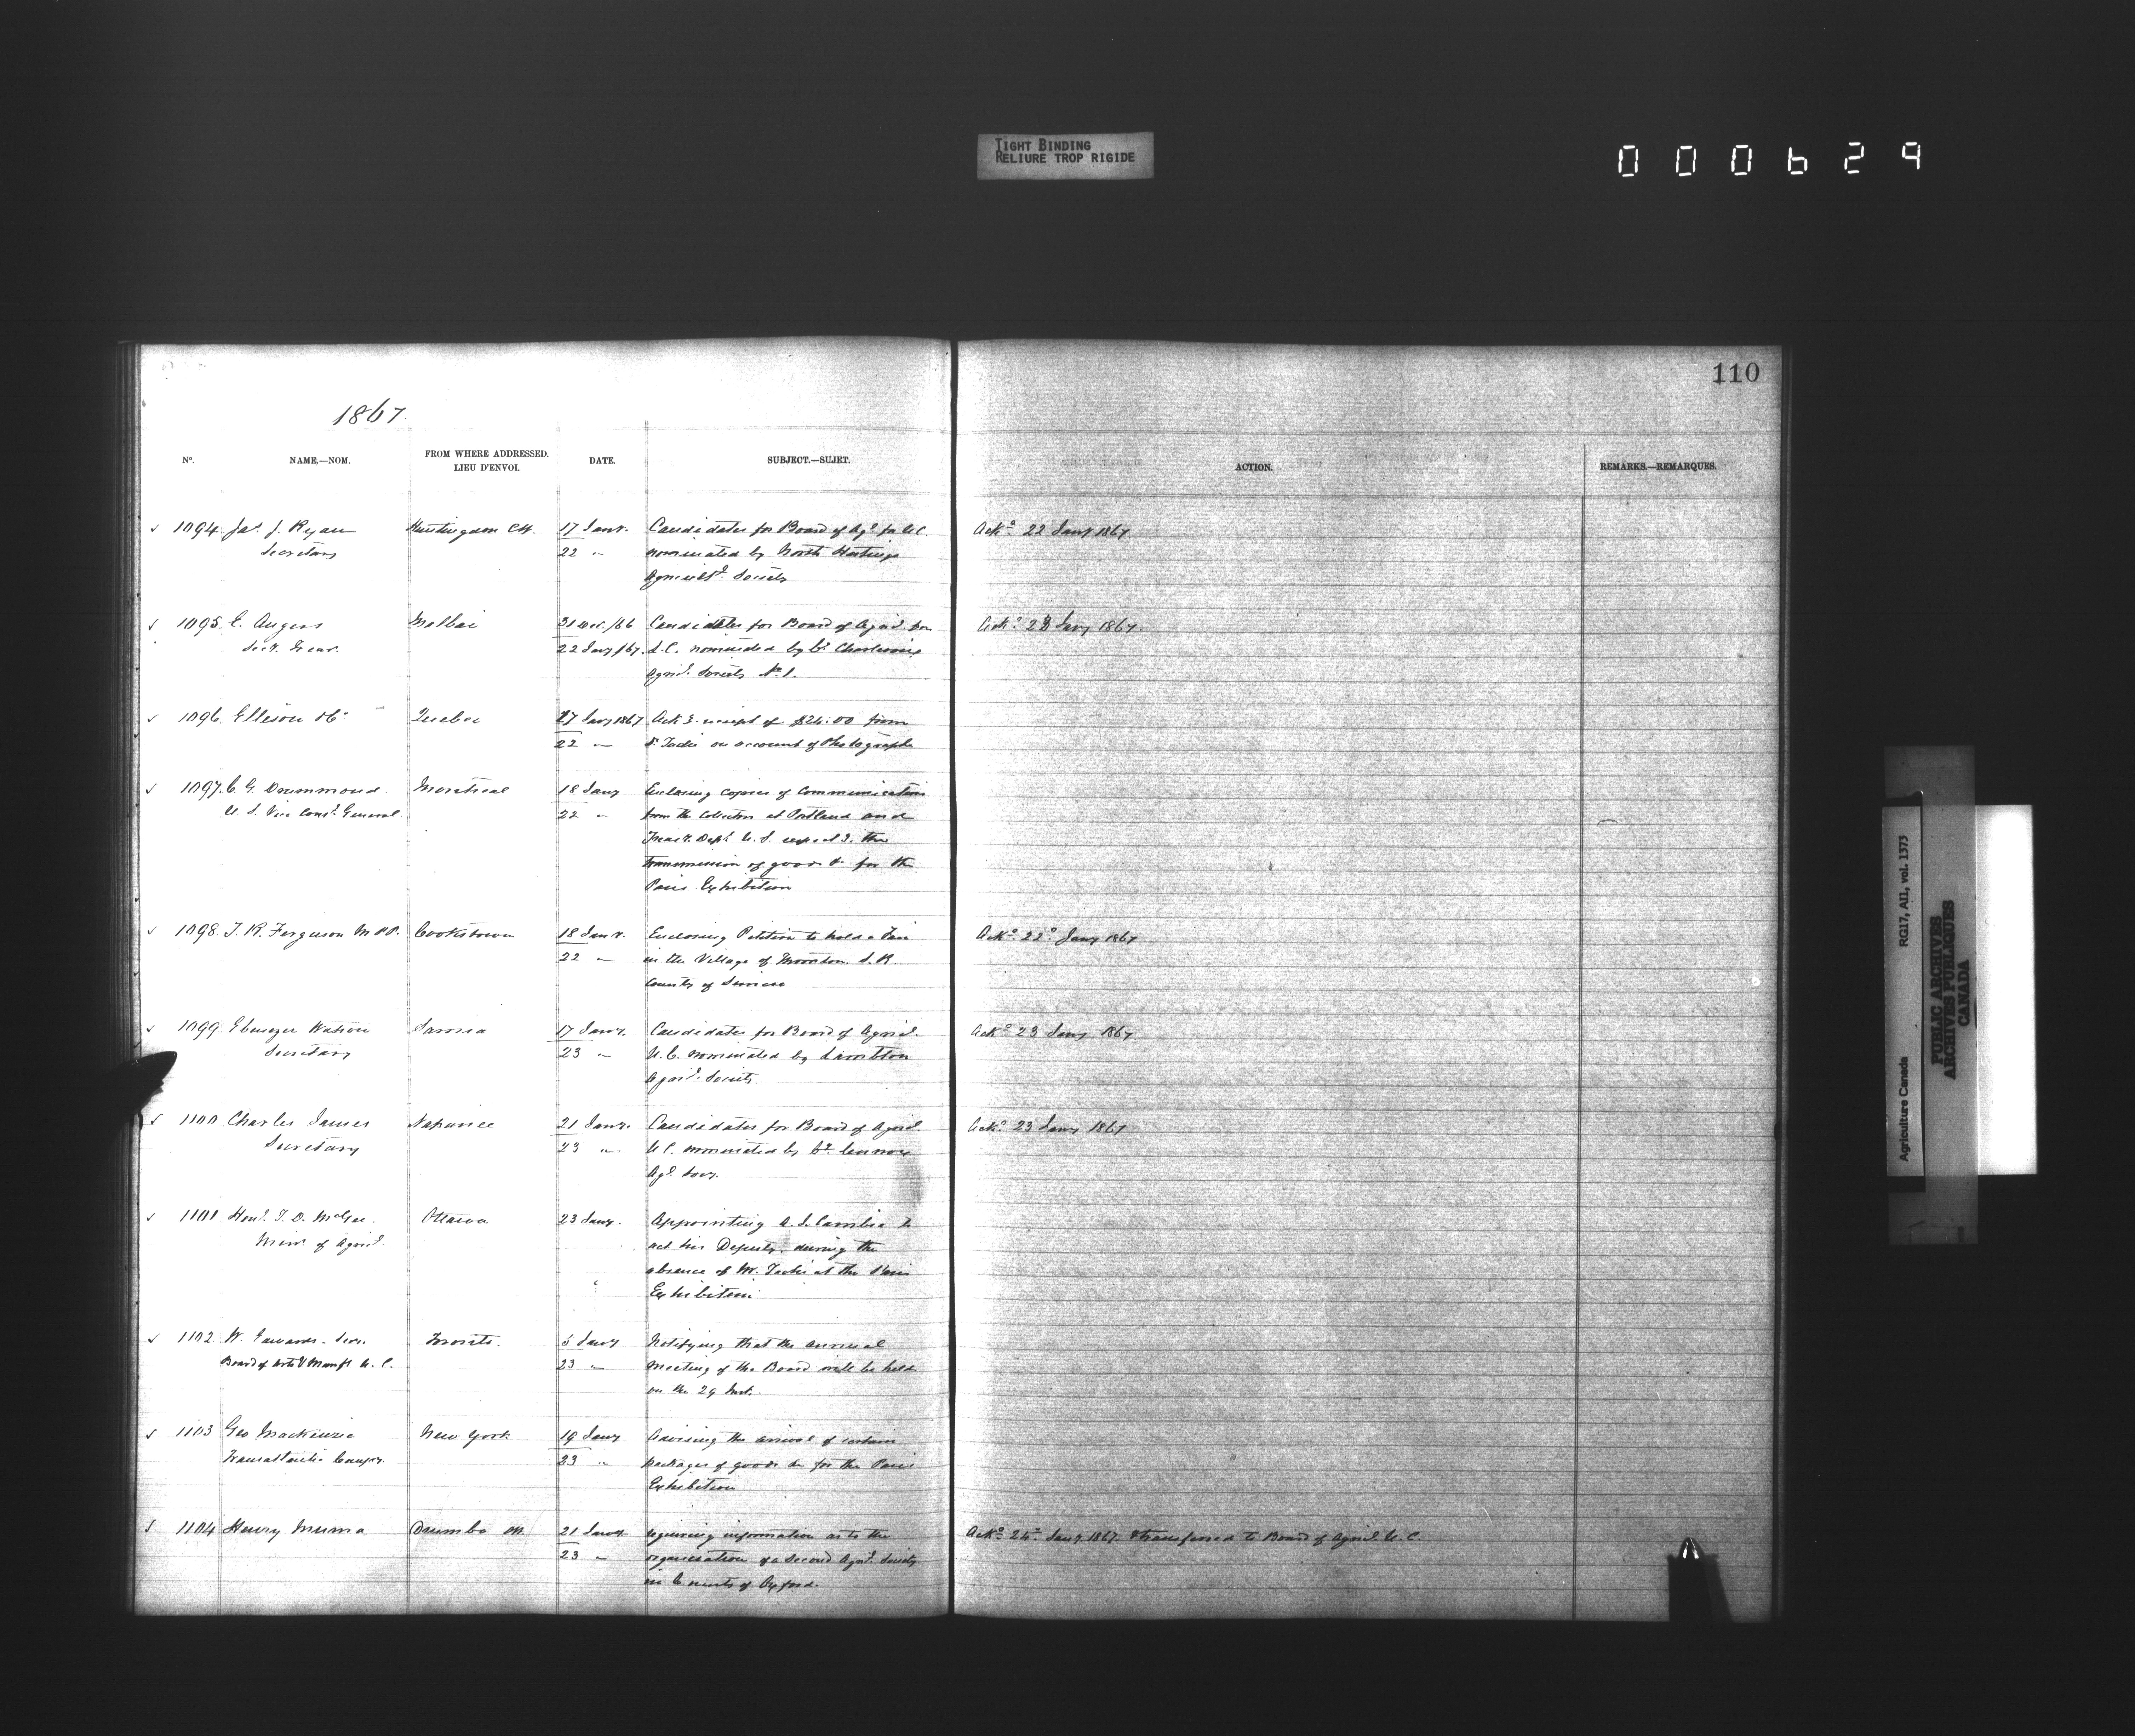 TIGHT BINDING
RELIURE TROP RIGIDE
000629
110
1867.
No. NAME,—NOM. FROM WHERE ADDRESSED. LIEU D'ENVOI. DATE. SUBJECT.—SUJET. ACTION. REMARKS.—REMARQUES.
1094 Jas. J. Ryan Huntingdon CW. 17 Jany. Candidates for Board of Agl. for U.C. Ackd. 22 Jany 1867
Secretary 22 " nominated by North Hastings
Agricultl. Society
1095 E. Angers Malbaie 31 Dec. /66 Candidates for Board of Agricl. for Ackd. 23 Jany 1867.
Secy. Treas. 22 Jany /67 L.C. nominated by Co. Charlevoix
Agricl. Society No. 1.
1096 Ellison & Co. Quebec 17 Jany 1867 Ackg. receipt of $24.00 from
22 " Dr. Taché on account of Photographs
1097 C. G. Drummond Montreal 18 Jany Enclosing copies of Communications
U. S. Vice Consl. General 22 " from the Collector at Portland and
Treasy. Dept. U. S. respectg. the
transmission of goods &c for the
Paris Exhibition
1098 T. R. Ferguson M.P.P. Cookstown 18 Jany. Enclosing Petition to hold a Fair Ackd. 22d. Jany 1867
22 " in the Village of Thornton S. R.
County of Simcoe
1099 Ebenezer Watson Sarnia 17 Jany. Candidates for Board of Agricl. Ackd. 23 Jany 1867
Secretary 23 " U.C. nominated by Lambton
Agricl. Society
1100 Charles James Napanee 21 Jany. Candidates for Board of Agricl. Ackd. 23 Jany 1867
Secretary 23 " U C. nominated by Co. Lennox
Agl. Socy.
1101 Honl. T. D. McGee Ottawa 23 Jany. Appointing A. J. Cambie to
Minr. of Agricl. act his Deputy during the
absence of Mr. Taché at the Paris
Exhibition
1102 W. Edwards. Secy. Toronto. 5 Jany Notifying that the annual
Board of Arts & Manfs U. C. 23 " meeting of the Board will be held
on the 29 Inst.
1103 Geo Mackenzie New York 19 Jany Advising the arrival of certain
Transatlantic Compy. 23 " packages of goods &c for the Paris
Exhibition
1104 Henry Muma Drumbo CW. 21 Jany requiring information as to the Ackd. 24d. Jany 1867. & transferred to Board of Agricl. U. C.
23 " organization of a Second Agrl. Society
in County of Oxford.
Agriculture Canada RG17, AII, vol. 1373
PUBLIC ARCHIVES
ARCHIVES PUBLIQUES
CANADA